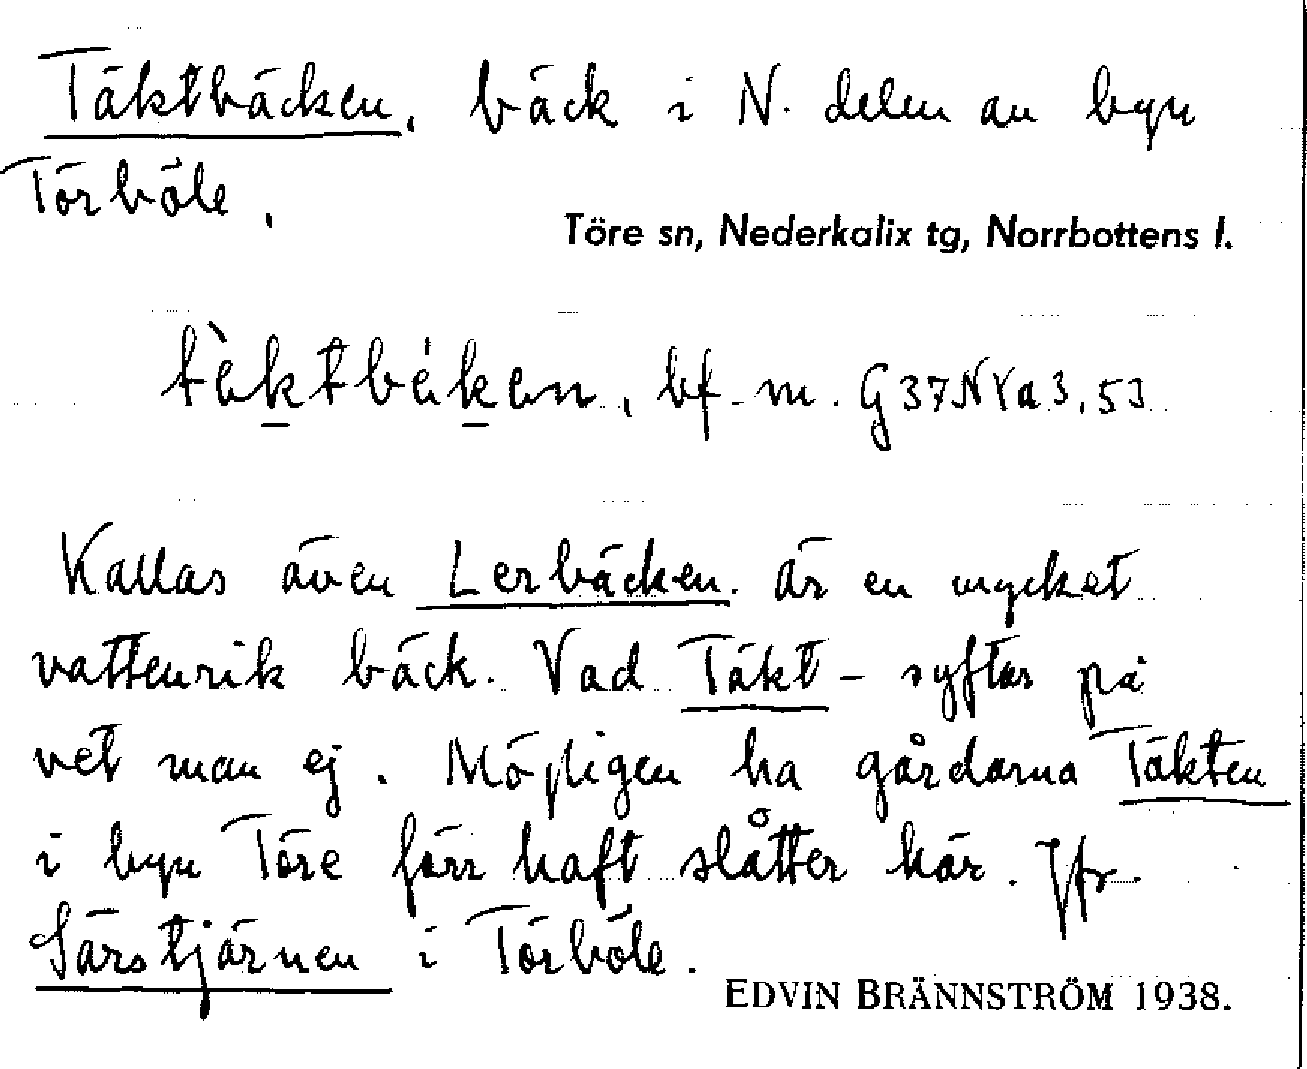 Täktbäcken, bäck i N. delen av byn
Törböle.
Töre sn, Nederkalix tg, Norrbottens l.
tè̀ktbéken, bf. m. G37NYa3,53
Kallas även Lerbäcken. Är en mycket
vattenrik bäck. Vad Täkt- syftar på
vet man ej. Möjligen ha gårdarna Täkten
i byn Töre förr haft slåtter här. Jfr
Särstjärnen i Törböle.
EDVIN BRÄNNSTRÖM 1938.